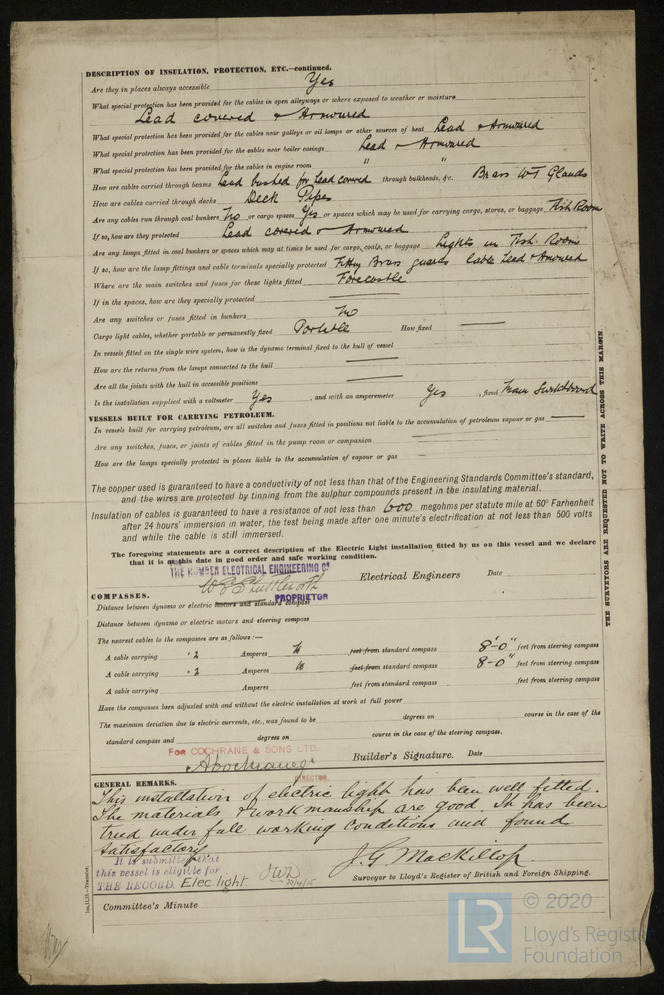 DESCRIPTION OF INSULATION, PROTECTION, ETC.—continued.
Are they in places always accessible Yes
What special protection has been provided for the cables in open alleyways or where exposed to weather or moisture
Lead covered & Armoured
What special protection has been provided for the cables near galleys or oil lamps or other sources of heat Lead & Armoured
What special protection has been provided for the cables near boiler casings Lead & Armoured
What special protection has been provided for the cables in engine room " "
How are cables carried through beams Lead bushed for Lead covered through bulkheads, &c. Brass WT Glands
How are cables carried through decks Deck Pipes
Are any cables run through coal bunkers No or cargo spaces Yes or spaces which may be used for carrying cargo, stores, or baggage Fish Room
If so, how are they protected Lead covered & Armoured
Are any lamps fitted in coal bunkers or spaces which may at times be used for cargo, coals, or baggage Lights in Fish Room
If so, how are the lamp fittings and cable terminals specially protected Brass guards Cable Lead & Armoured
Where are the main switches and fuses for these lights fitted Forecastle
If in the spaces, how are they specially protected
Are any switches or fuses fitted in bunkers No
Cargo light cables, whether portable or permanently fixed Portable How fixed
In vessels fitted on the single wire system, how is the dynamo terminal fixed to the hull of vessel
How are the returns from the lamps connected to the hull
Are all the joints with the hull in accessible positions
Is the installation supplied with a voltmeter Yes , and with an amperemeter Yes , fixed Main Switchboard
VESSELS BUILT FOR CARRYING PETROLEUM.
In vessels built for carrying petroleum, are all switches and fuses fitted in positions not liable to the accumulation of petroleum vapour or gas
Are any switches, fuses, or joints of cables fitted in the pump room or companion
How are the lamps specially protected in places liable to the accumulation of vapour or gas
The copper used is guaranteed to have a conductivity of not less than that of the Engineering Standards Committee's standard,
and the wires are protected by tinning from the sulphur compounds present in the insulating material.
Insulation of cables is guaranteed to have a resistance of not less than 600 megohms per statute mile at 60° Farhenheit
after 24 hours' immersion in water, the test being made after one minute's electrification at not less than 500 volts
and while the cable is still immersed.
The foregoing statements are a correct description of the Electric Light installation fitted by us on this vessel and we declare
that it is at this date in good order and safe working condition.
THE HUMBER ELECTRICAL ENGINEERING Co
W E Shuttleworth Electrical Engineers Date
PROPRIETOR
COMPASSES.
Distance between dynamo or electric motors and standard compass
Distance between dynamo or electric motors and steering compass
The nearest cables to the compasses are as follows:—
A cable carrying ·2 Amperes feet from standard compass 8'-0" feet from steering compass
A cable carrying ·2 Amperes feet from standard compass 8-0" feet from steering compass
A cable carrying Amperes feet from standard compass feet from steering compass
Have the compasses been adjusted with and without the electric installation at work at full power
The maximum deviation due to electric currents, etc., was found to be degrees on course in the case of the
standard compass and degrees on course in the case of the steering compass.
FOR COCHRANE & SONS LTD.
A Cochrane Builder's Signature. Date
DIRECTOR.
GENERAL REMARKS.
This installation of electric light has been well fitted.
The materials & workmanship are good. It has been
tried under full working conditions and found
satisfactory
J. G. Mackillop.
Surveyor to Lloyd's Register of British and Foreign Shipping.
It is submitted that
this vessel is eligible for
THE RECORD. Elec. light.
Committee's Minute
THE SURVEYORS ARE REQUESTED NOT TO WRITE ACROSS THIS MARGIN.
LR © 2020
Lloyd's Register
Foundation